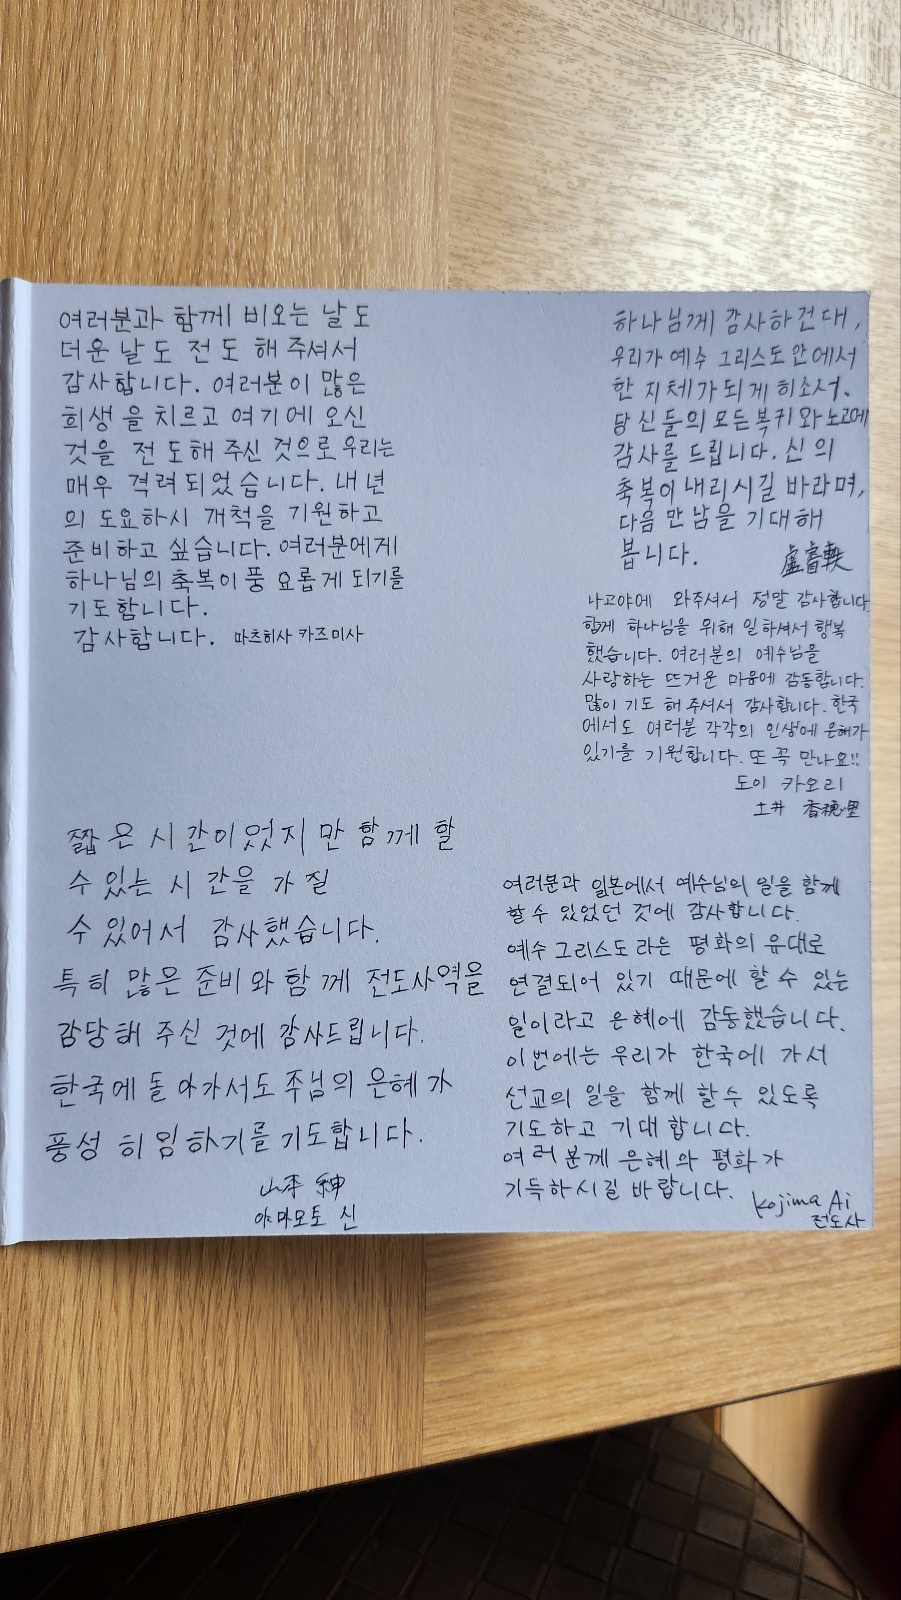 여러분과 함께 비오는 날도
더운 날도 전도 해 주셔서
감사합니다. 여러분이 많은
희생을 치르고 여기에 오신
것을 전도해 주신 것으로 우리는
매우 격려되었습니다. 내년
의 도요하시 개척을 기원하고
준비하고 싶습니다. 여러분에게
하나님의 축복이 풍요롭게 되기를
기도합니다.
감사합니다. 마츠히사 카즈미사
하나님께 감사하건대,
우리가 예수 그리스도 안에서
한 지체가 되게 히소서.
당신들의 모든 복귀와 노고에
감사를 드립니다. 신의
축복이 내리시길 바라며,
다음 만남을 기대해
봅니다. 盧睿軼
나고야에 와주셔서 정말 감사합니다
함께 하나님을 위해 일하셔서 행복
했습니다. 여러분의 예수님을
사랑하는 뜨거운 마음에 감동합니다.
많이 기도 해 주셔서 감사합니다. 한국
에서도 여러분 각각의 인생에 은혜가
있기를 기원합니다. 또 꼭 만나요!!
도이 카오리
土井 香穂里
짧은 시간이었지만 함께 할
수 있는 시간을 가질
수 있어서 감사했습니다.
특히 많은 준비와 함께 전도사역을
감당해 주신 것에 감사드립니다.
한국에 돌아가서도 주님의 은혜가
풍성히 임하기를 기도합니다.
山本 紳
야마모토 신
여러분과 일본에서 예수님의 일을 함께
할 수 있었던 것에 감사합니다.
예수 그리스도라는 평화의 유대로
연결되어 있기 때문에 할 수 있는
일이라고 은혜에 감동했습니다.
이번에는 우리가 한국에 가서
선교의 일을 함께 할 수 있도록
기도하고 기대합니다.
여러분께 은혜와 평화가
가득하시길 바랍니다. Kojima Ai
전도사